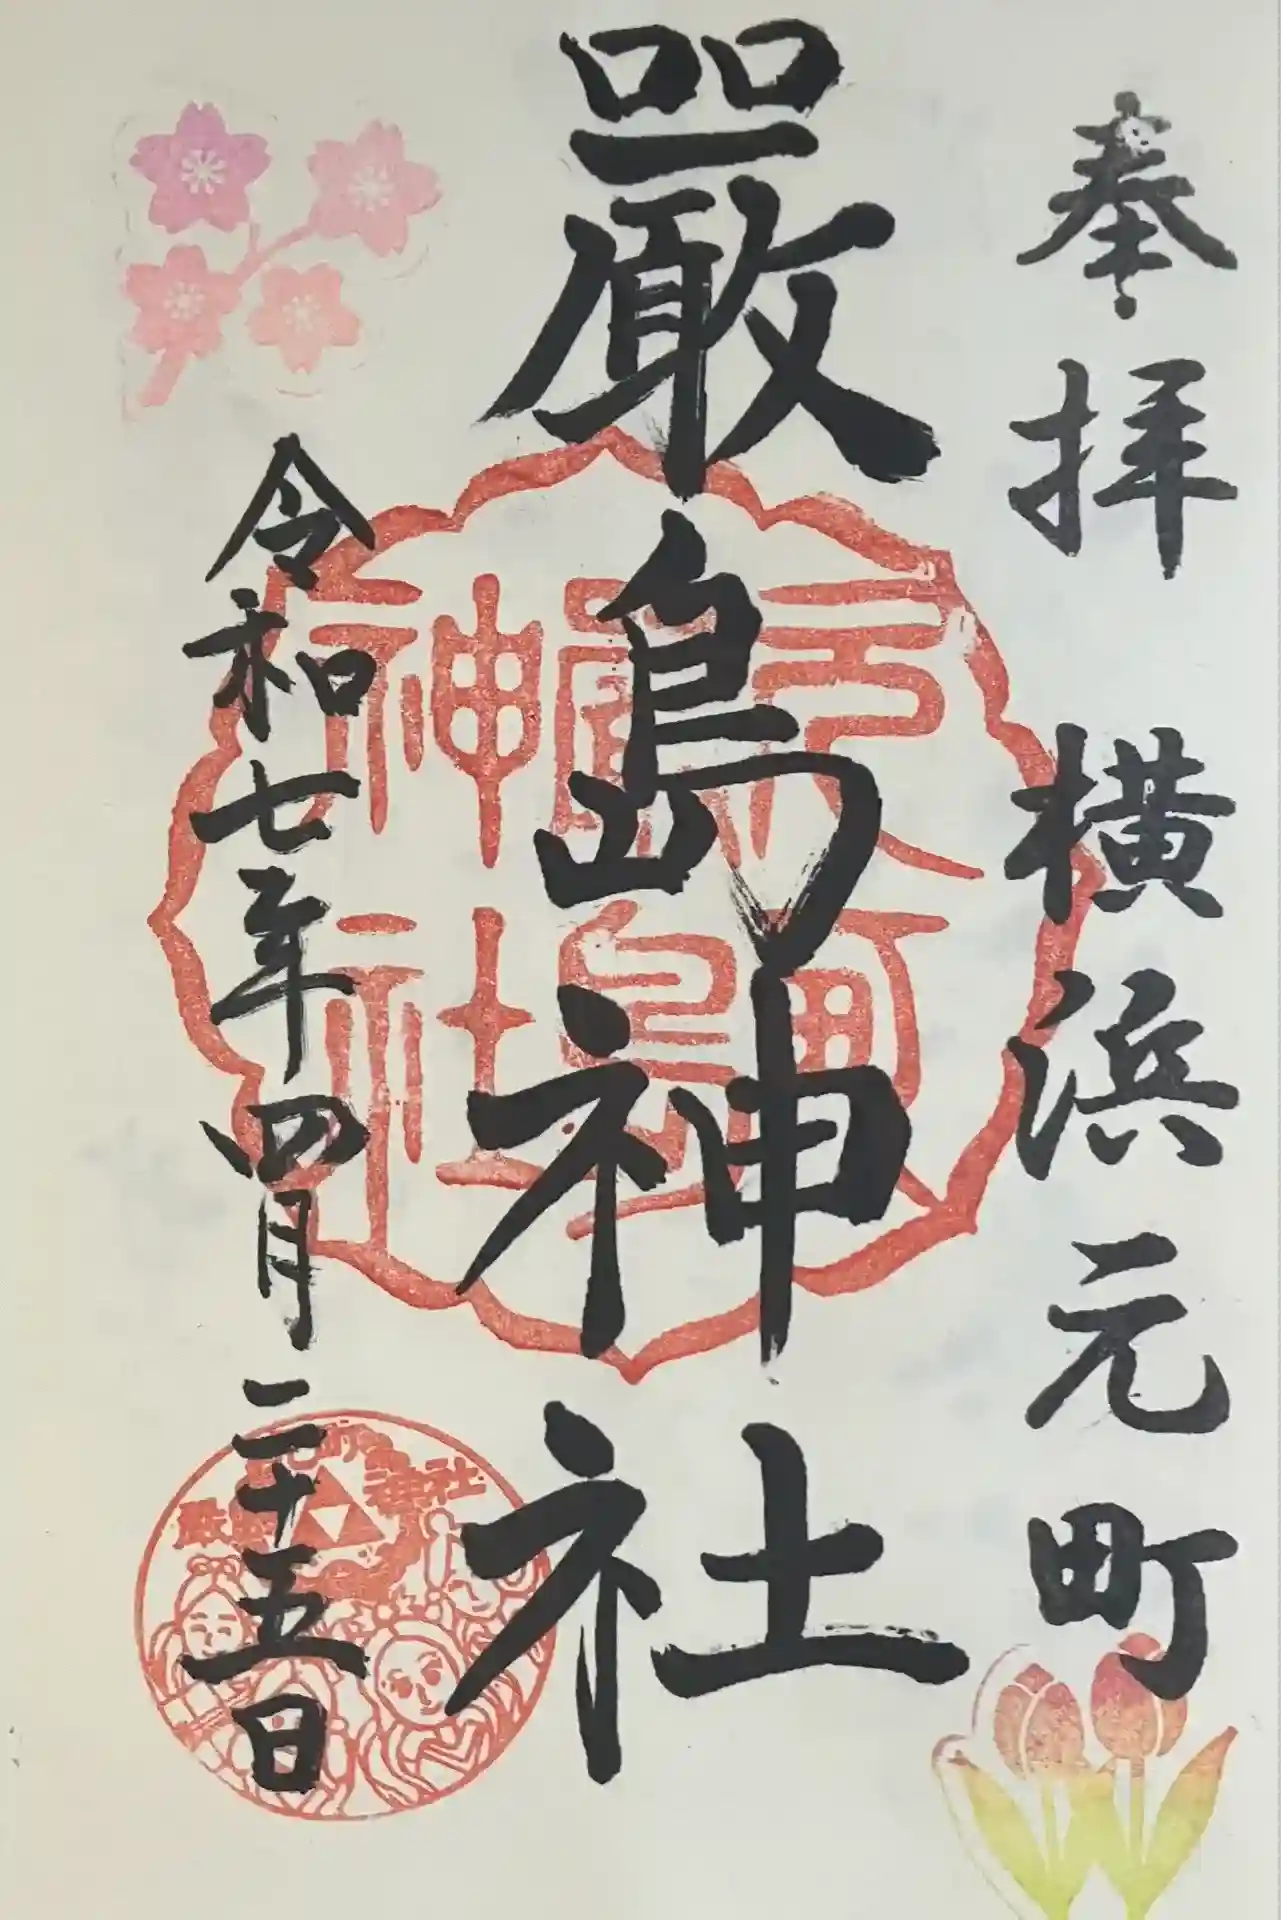 奉拝 横浜元町
厳島神社
令和七年四月二十五日
元町
厳島神社
元町
嚴島
神社